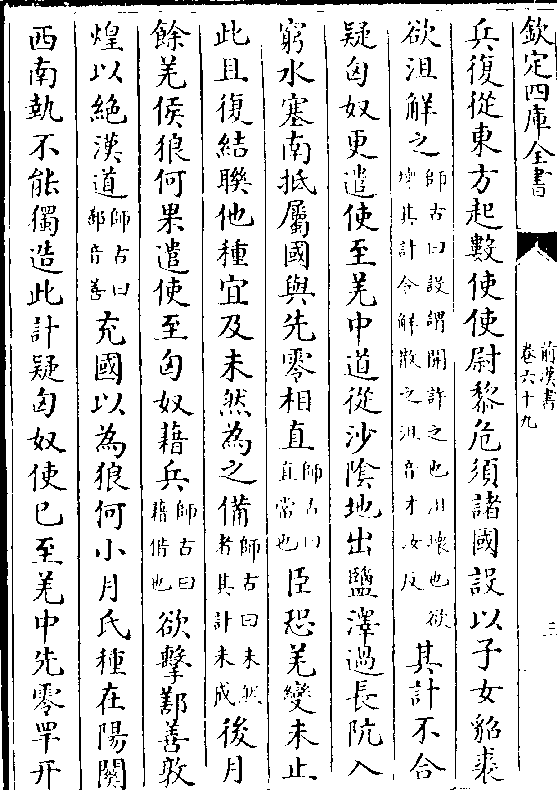 欽定四庫全書
前漢書
卷六十九
三
兵復從東方起數使使尉黎危須諸國設以子女貂裘
欲沮解之師古曰設謂開許之也沮壞也欲壞其計令解散之沮音才汝反其計不合
疑匈奴更遣使至羌中道從沙陰地出鹽澤過長阬入
窮水塞南抵屬國與先零相直師古曰直當也臣恐羌變未止
此且復結聯他種宜及未然為之備師古曰未然者其計未成後月
餘羌侯狼何果遣使至匈奴藉兵師古曰藉借也欲擊鄯善敦
煌以絶漢道師古曰鄯音善充國以為狼何小月氏種在陽關
西南埶不能獨造此計疑匈奴使已至羌中先零䍐幵